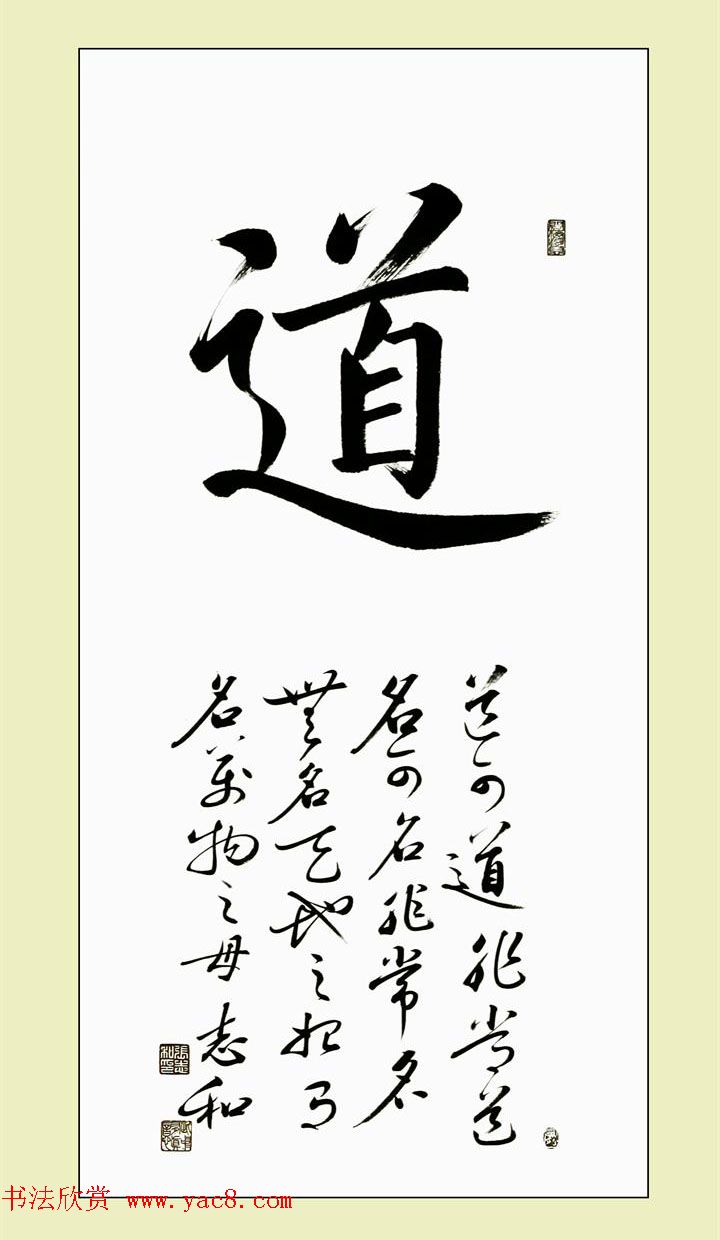 道
道可道非常道
名可名非常名
無名天地之始有
名萬物之母志和
书法欣赏 www.yac8.com